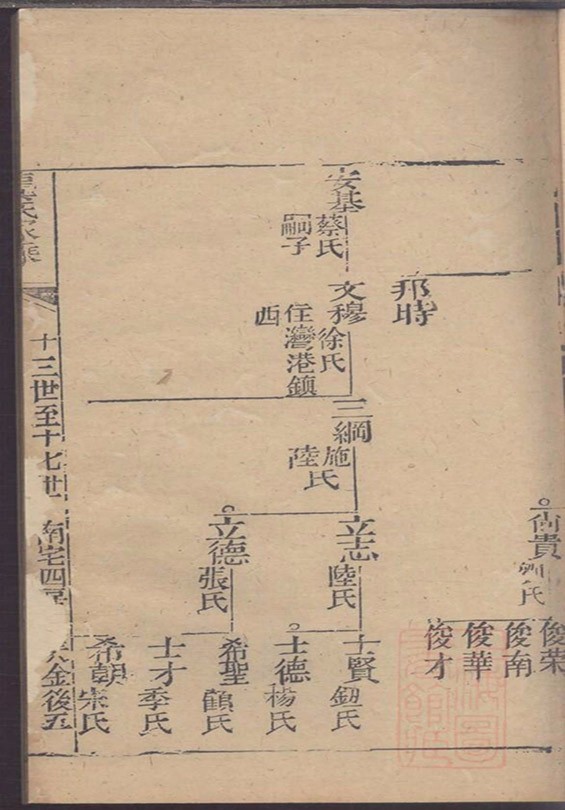 尙貴
氏
俊荣
俊南
俊華
俊才
邦時
安基
蔡氏
嗣子
文穆
徐氏
住灣港鎮
西
三綱
施氏
陸
立志
陸氏
立德
張氏
士賢
鈕氏
士德
楊氏
希聖
顧氏
士才
季氏
希朝
宋氏
氏家乘
十三世至十七世
南宅四房
金後五